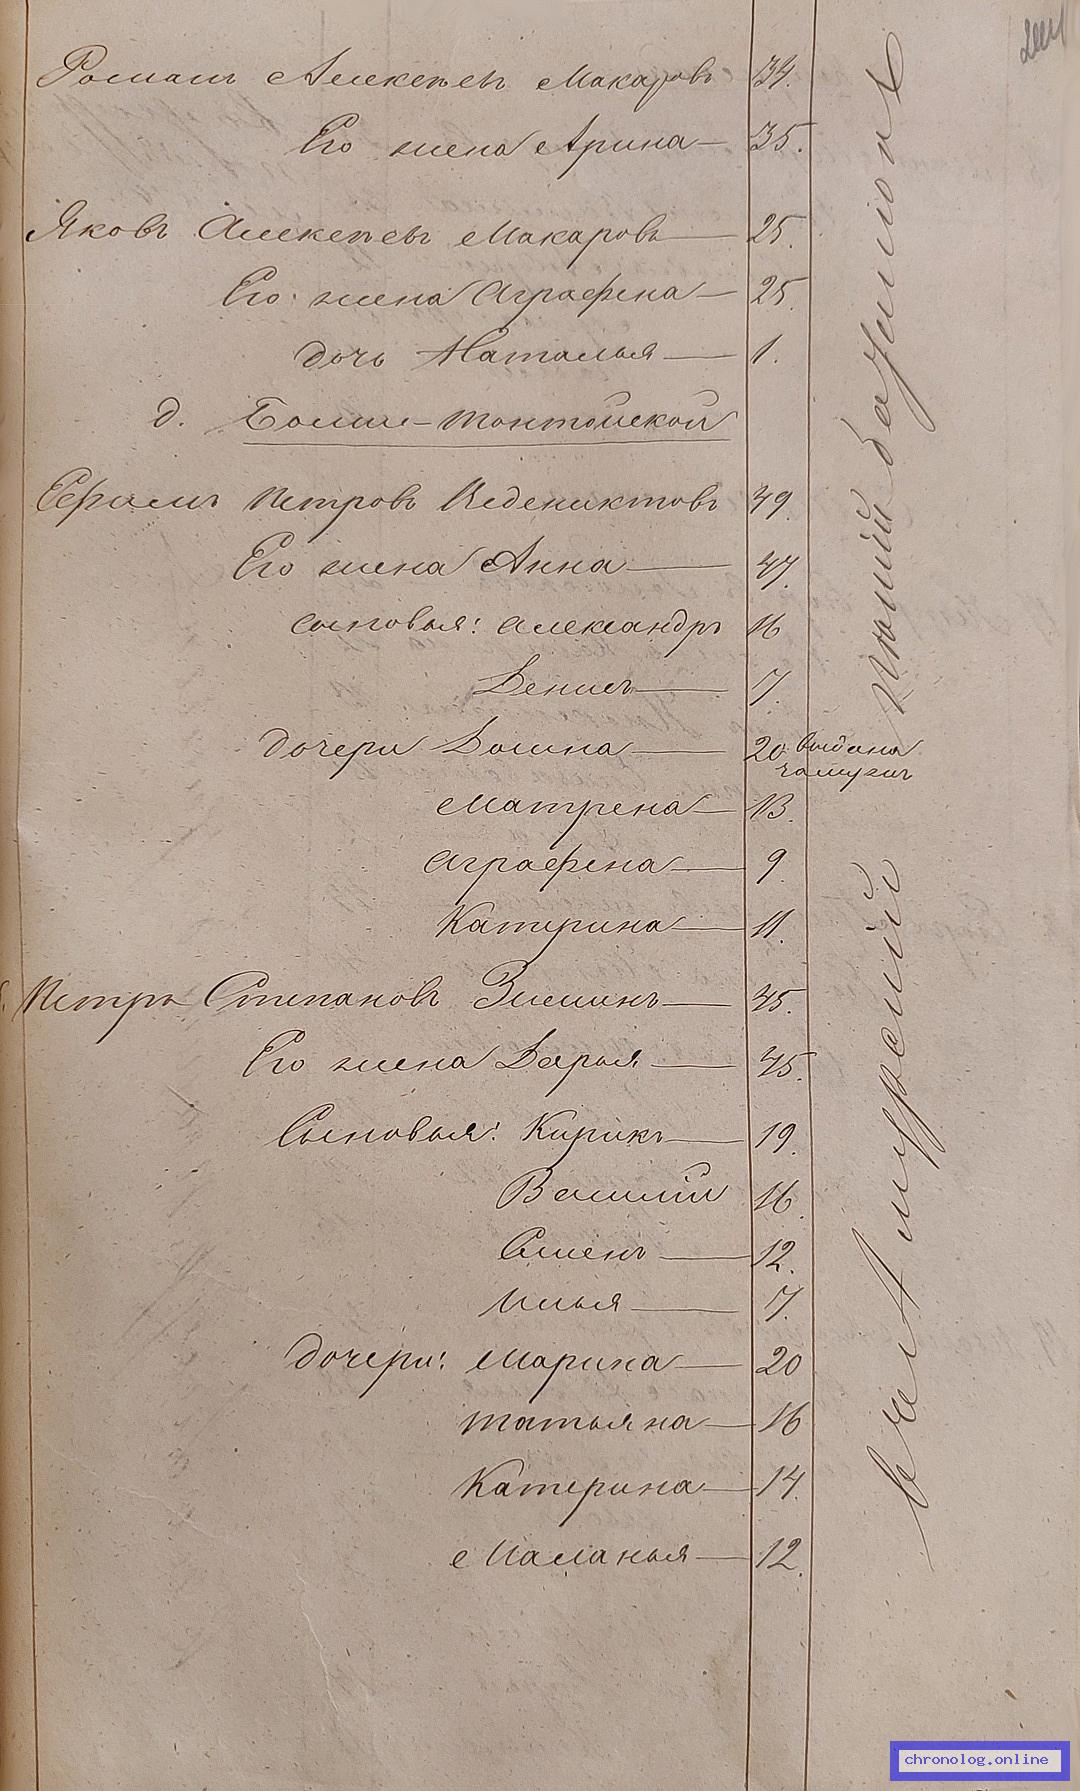 Романъ Алексеевъ Макаровъ 34.
Его жена Арина — 35.
Яковъ Алексеевъ Макаровъ — 25.
Его жена Аграфена — 25.
дочь Наталья — 1.
д. Больше-
Ефимъ Петровъ Ведениктовъ 49.
Его жена Анна — 47.
сыновья: Александръ 16
Денисъ — 7.
дочери Домна — 20. выдана
замужъ
Матрена — 13.
Аграфена — 9.
Катерина — 11.
Петръ Степановъ Зиминъ — 45.
Его жена Дарья — 45.
Сыновья: Кирикъ — 19.
Василій 16.
Семенъ — 12.
Илья — 7.
дочери: Марина — 20
Татьяна — 16
Катерина — 14.
Маланья — 12.
chronolog.online